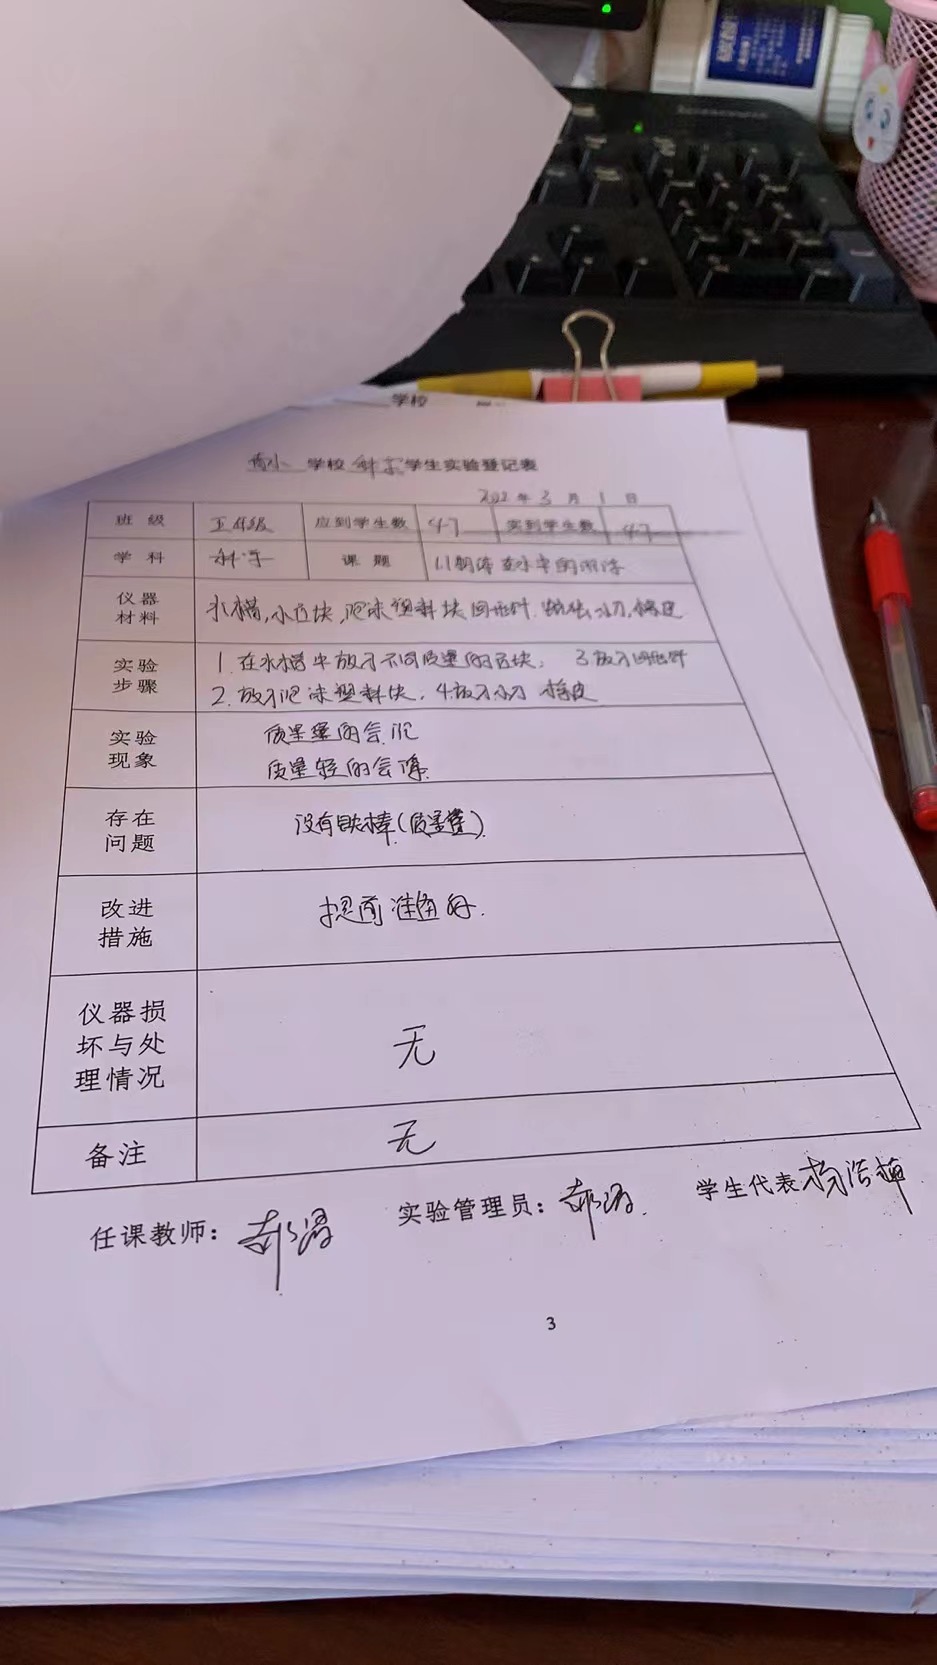 学校
学校 科学 学生实验登记表
2022年3月1日
班级 五年级 应到学生数 47 实到学生数 47
学科 科学 课题 1.1物体在水中的沉浮
仪器材料 水槽,小石块,泡沫塑料块 回形针 蜡烛 小刀,橡皮
实验步骤 1.在水槽中放入不同质量的石块, 3放入回形针
2.放入泡沫塑料块. 4放入小刀 橡皮
实验现象 质量重的会沉
质量轻的会浮.
存在问题 没有铁棒(质量重).
改进措施 提前准备好.
仪器损坏与处理情况 无
备注 无
任课教师: 实验管理员: 学生代表
3